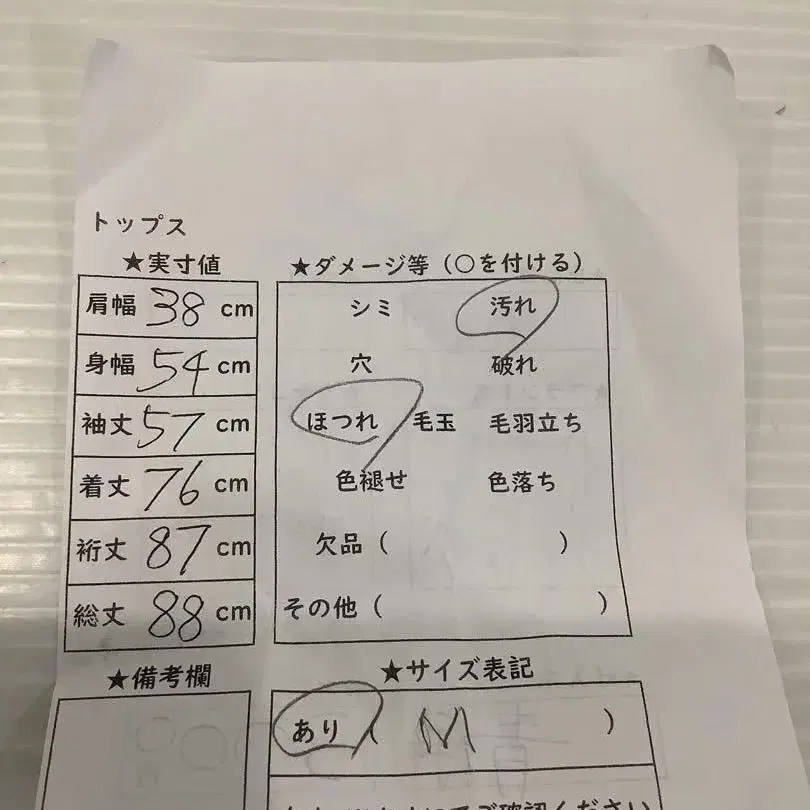 トップス
★実寸値
肩幅 38 cm
身幅 54 cm
袖丈 57 cm
着丈 76 cm
裄丈 87 cm
総丈 88 cm
★ダメージ等（○を付ける）
シミ 汚れ
穴 破れ
ほつれ 毛玉 毛羽立ち
色褪せ 色落ち
欠品（ ）
その他（ ）
★備考欄
★サイズ表記
あり（ M ）
ご確認ください